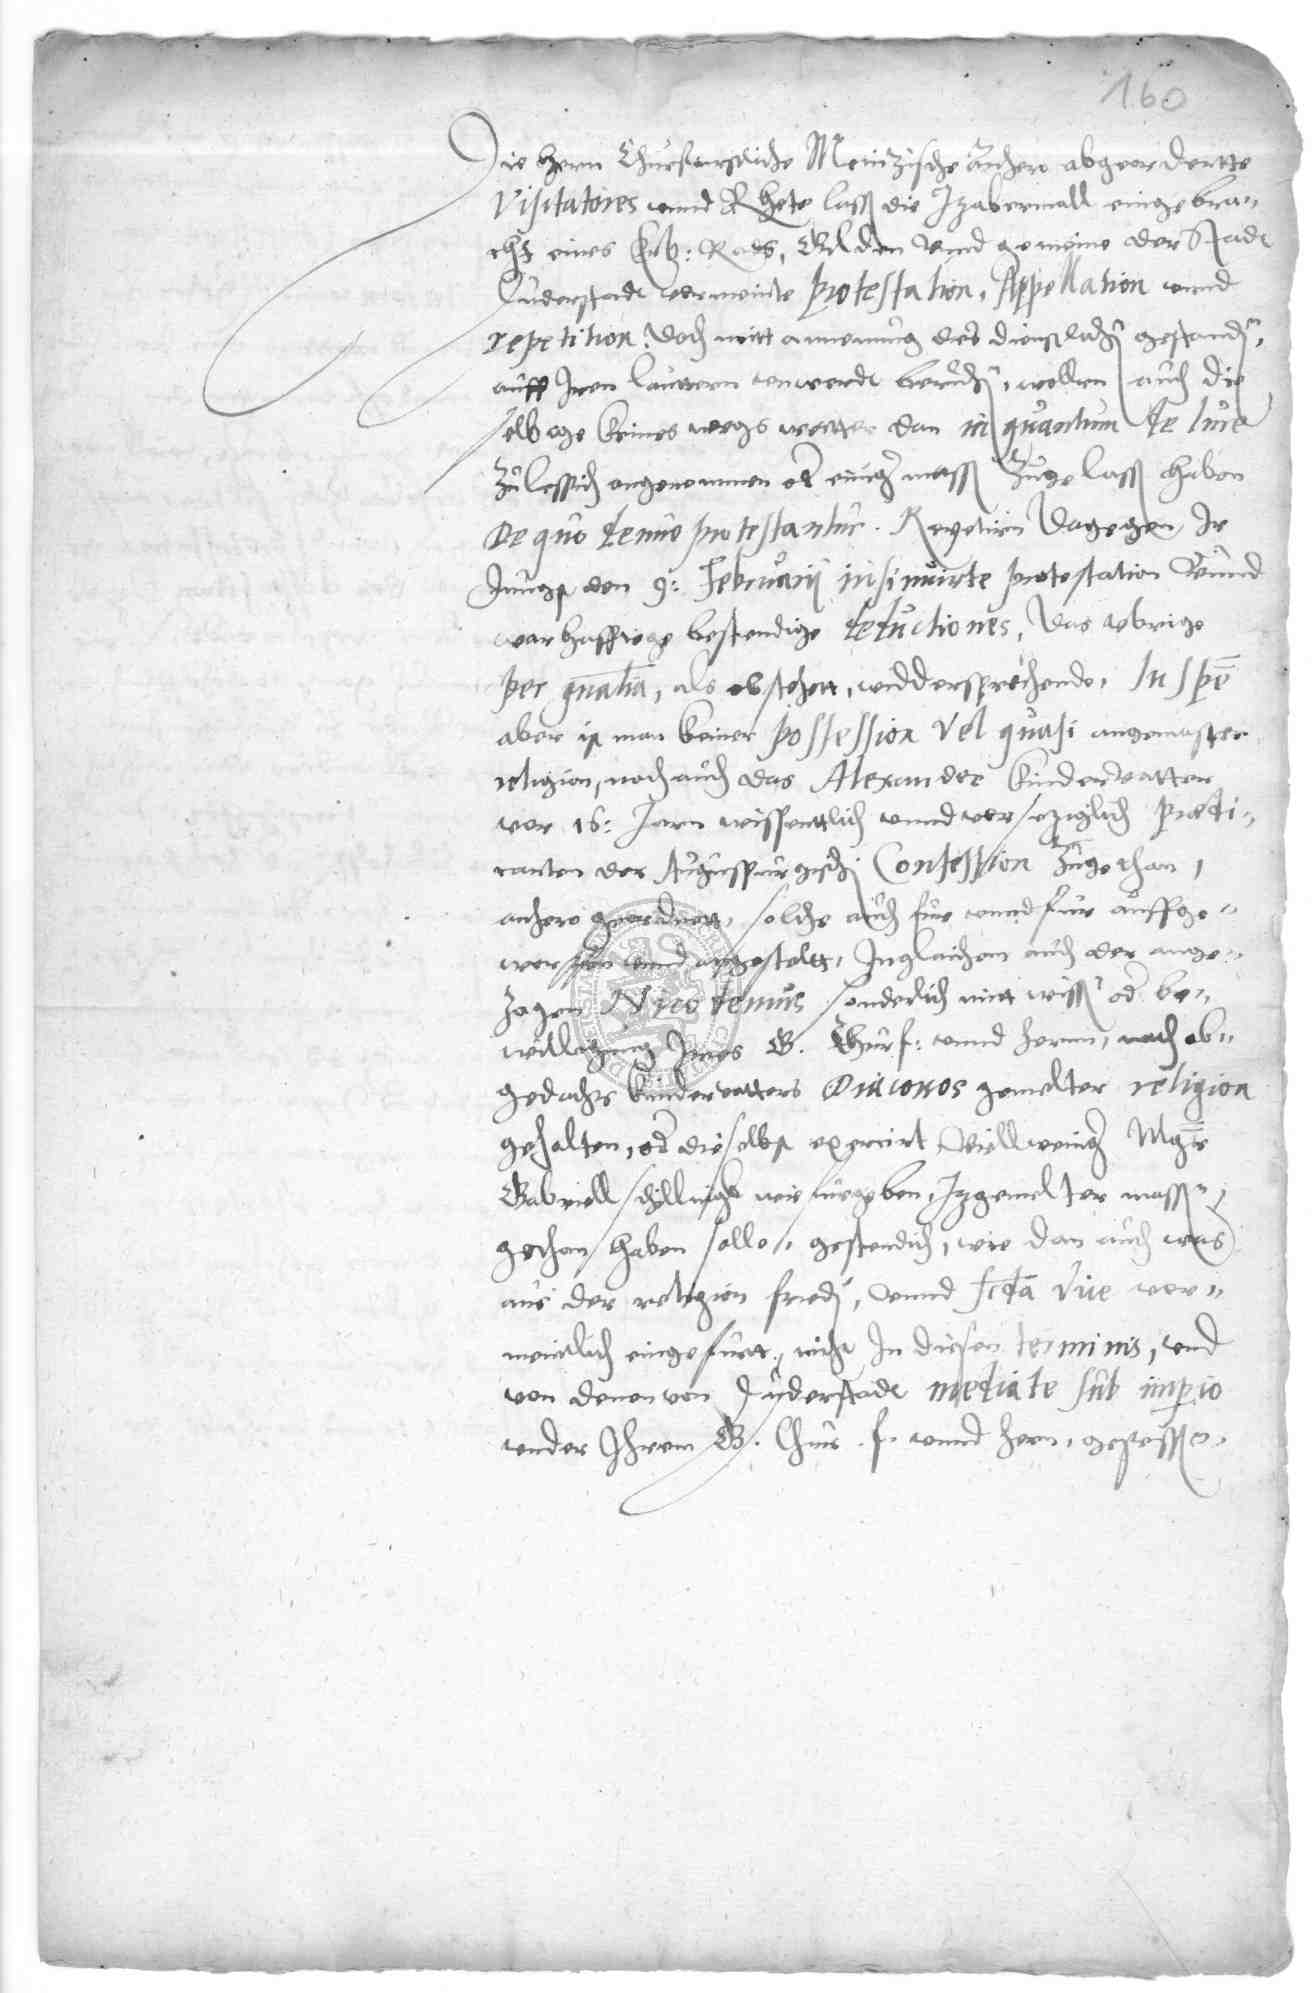 160
Die hern Churfurstliche Meintzische anhero abgeordertte
Visitatores unnd Rhete lass die Itzabermall eingebra„
cht eines Erb: Rads, Gilden unnd gemeine der Stadt
Duderstadt vermeinte Protestation, Appellation unnd
repetition. Doch mitt annemung des dienstlichen
auff Iren lautern unwerdt beruhen, wollen auch die
selbige keines wegs weitter dan in quantum de Iure
Zulessich angenommen od einiger mass Zugelass haben
De quo denuo protestantur. Repetirn Dagegen Ir
Jungst den 9: Februarii insinuirte protestation Unnd
warhafftige bestendige deductiones, Das ubrige
per gnalia, als obstehett, widdersprechende. In spe
aber ist man keiner possession vel quasi angemaster
religion, noch auch das Alexander Kindervatter
vor 16: Jarn wissentlich unnd vorsetziglich
der Auguspurgisch Confession Zugethan,
anhero geordnett, solche auch fur unnd fur auffge„
worffen unnd angestelt, Ingleichem auch der ange„
Zogen Nicodemus sonderlich mitt wiss od be„
willigung Ires G. Churf: unnd herrn, nach ob„
gedachts Kindervatters Diaconos gemelter religion
gehalten, od dieselbst exercirt, Viell weinig Mgr
Gabriell Schillingk wie furgeben, Itzgemelter mass,
gethan haben solle, gestendich, wie dan auch was
aus der religion fried, unnd fcta Vne ver„
meintlich eingefurtt, nicht In diesen terminis, und
von denen von Duderstadt mediate sub imprio
under Ihrem G. Chur. f. unnd hern, gesessen.